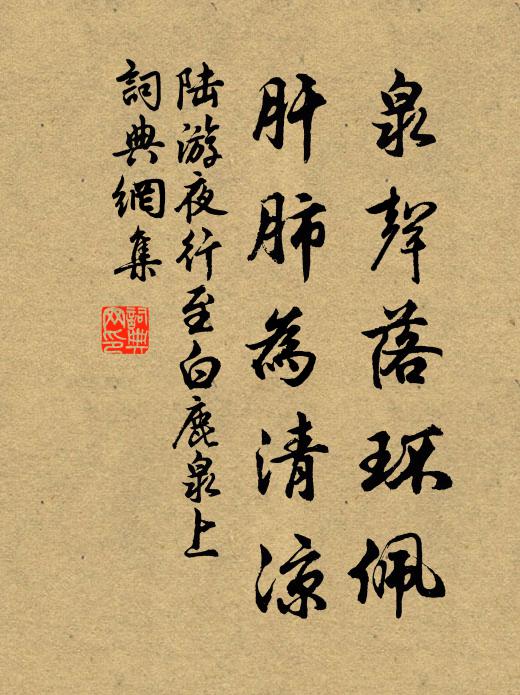 泉聲落环佩
肝肺為清涼
陆游夜行至白鹿泉上
詞典網集
詞典网印